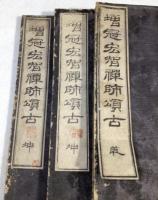 增冠宏智禪師頌古 乾
增冠宏智禪師頌古 坤
增冠宏智禪師頌古 坤